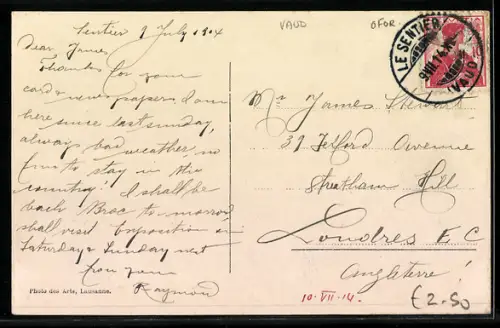 VAUD
OFOR.
Sentier 9 July 1914
Dear James
Thanks for your
card & newspapers. I am
here since last sunday,
always bad weather, no
fun to stay in the
country! I shall be
back Broc to-morrow
shall visit Exposition on
Saturday & Sunday next
from yours
Raymond
Photo des Arts, Lausanne.
LE SENTIER
(VAUD)
Mr James Stewart
39 Telford Avenue
Streatham Hill
Londres E C
Angleterre!
10.VII.14.
£2.50